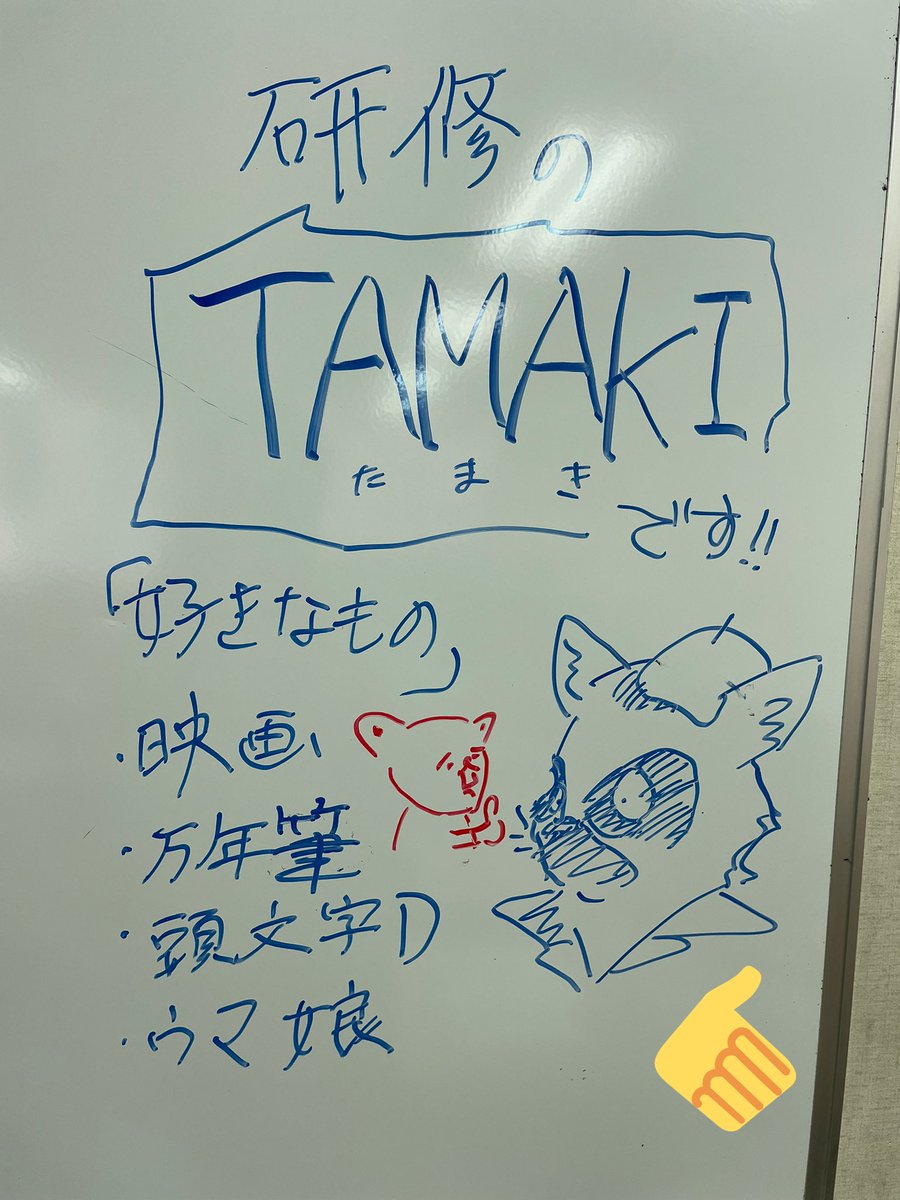 研修の
TAMAKI
たまき
です!!
「好きなもの」
・映画
・万年筆
・頭文字D
・ウマ娘